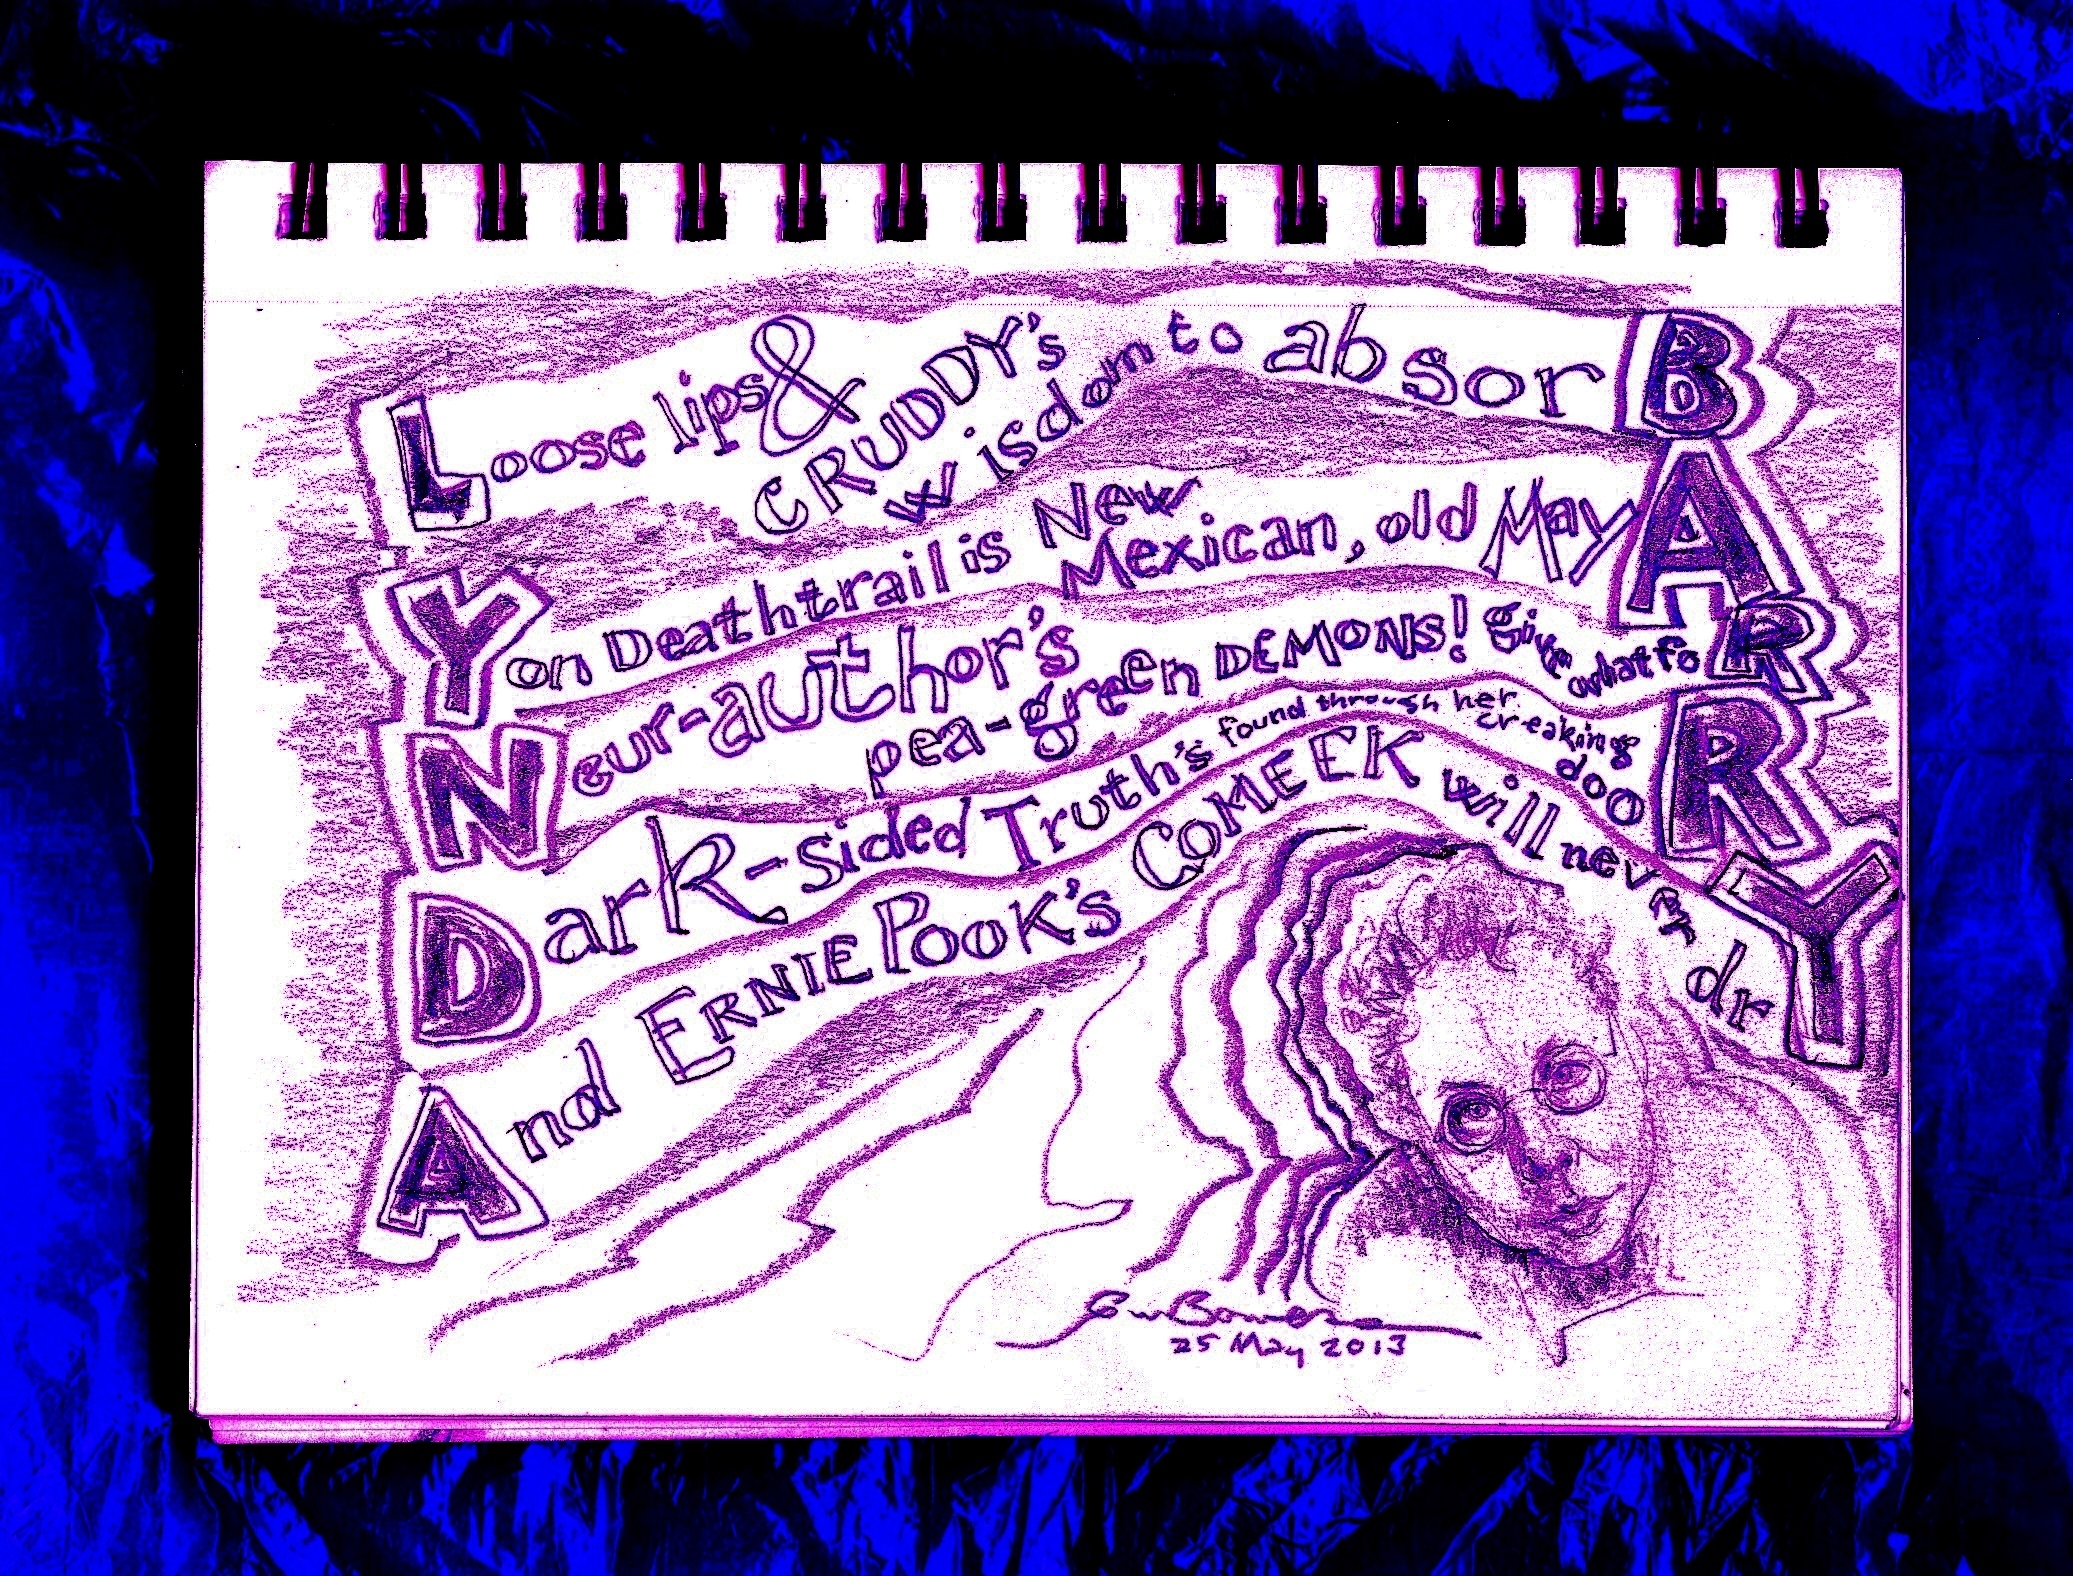 Loose lips & CRUDDY's Wisdom to absorB
Yon Deathtrail is New Mexican, old MayA
Neur-author's pea-green DEMONS! Give whatfoR
Dark-sided Truth's found through her creaking dooR
And ERNIE POOK's COMEEK will never drY
25 May 2013